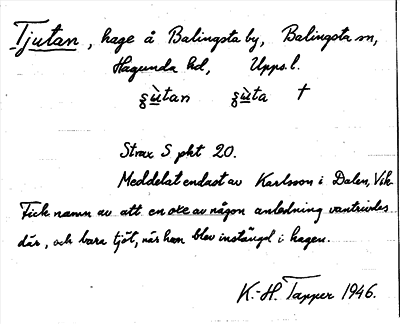 Tjutan, hage å Balingsta by, Balingsta sn,
Hagunda hd, Upps. l.
ʂùtan ʂùta †
Strax S pkt 20.
Meddelat endast av Karlsson i Dalen, Vik.
Fick namn av att en oxe av någon anledning vantrivdes
där, och bara tjöt, när han blev instängd i hagen.
K.-H. Tapper 1946.